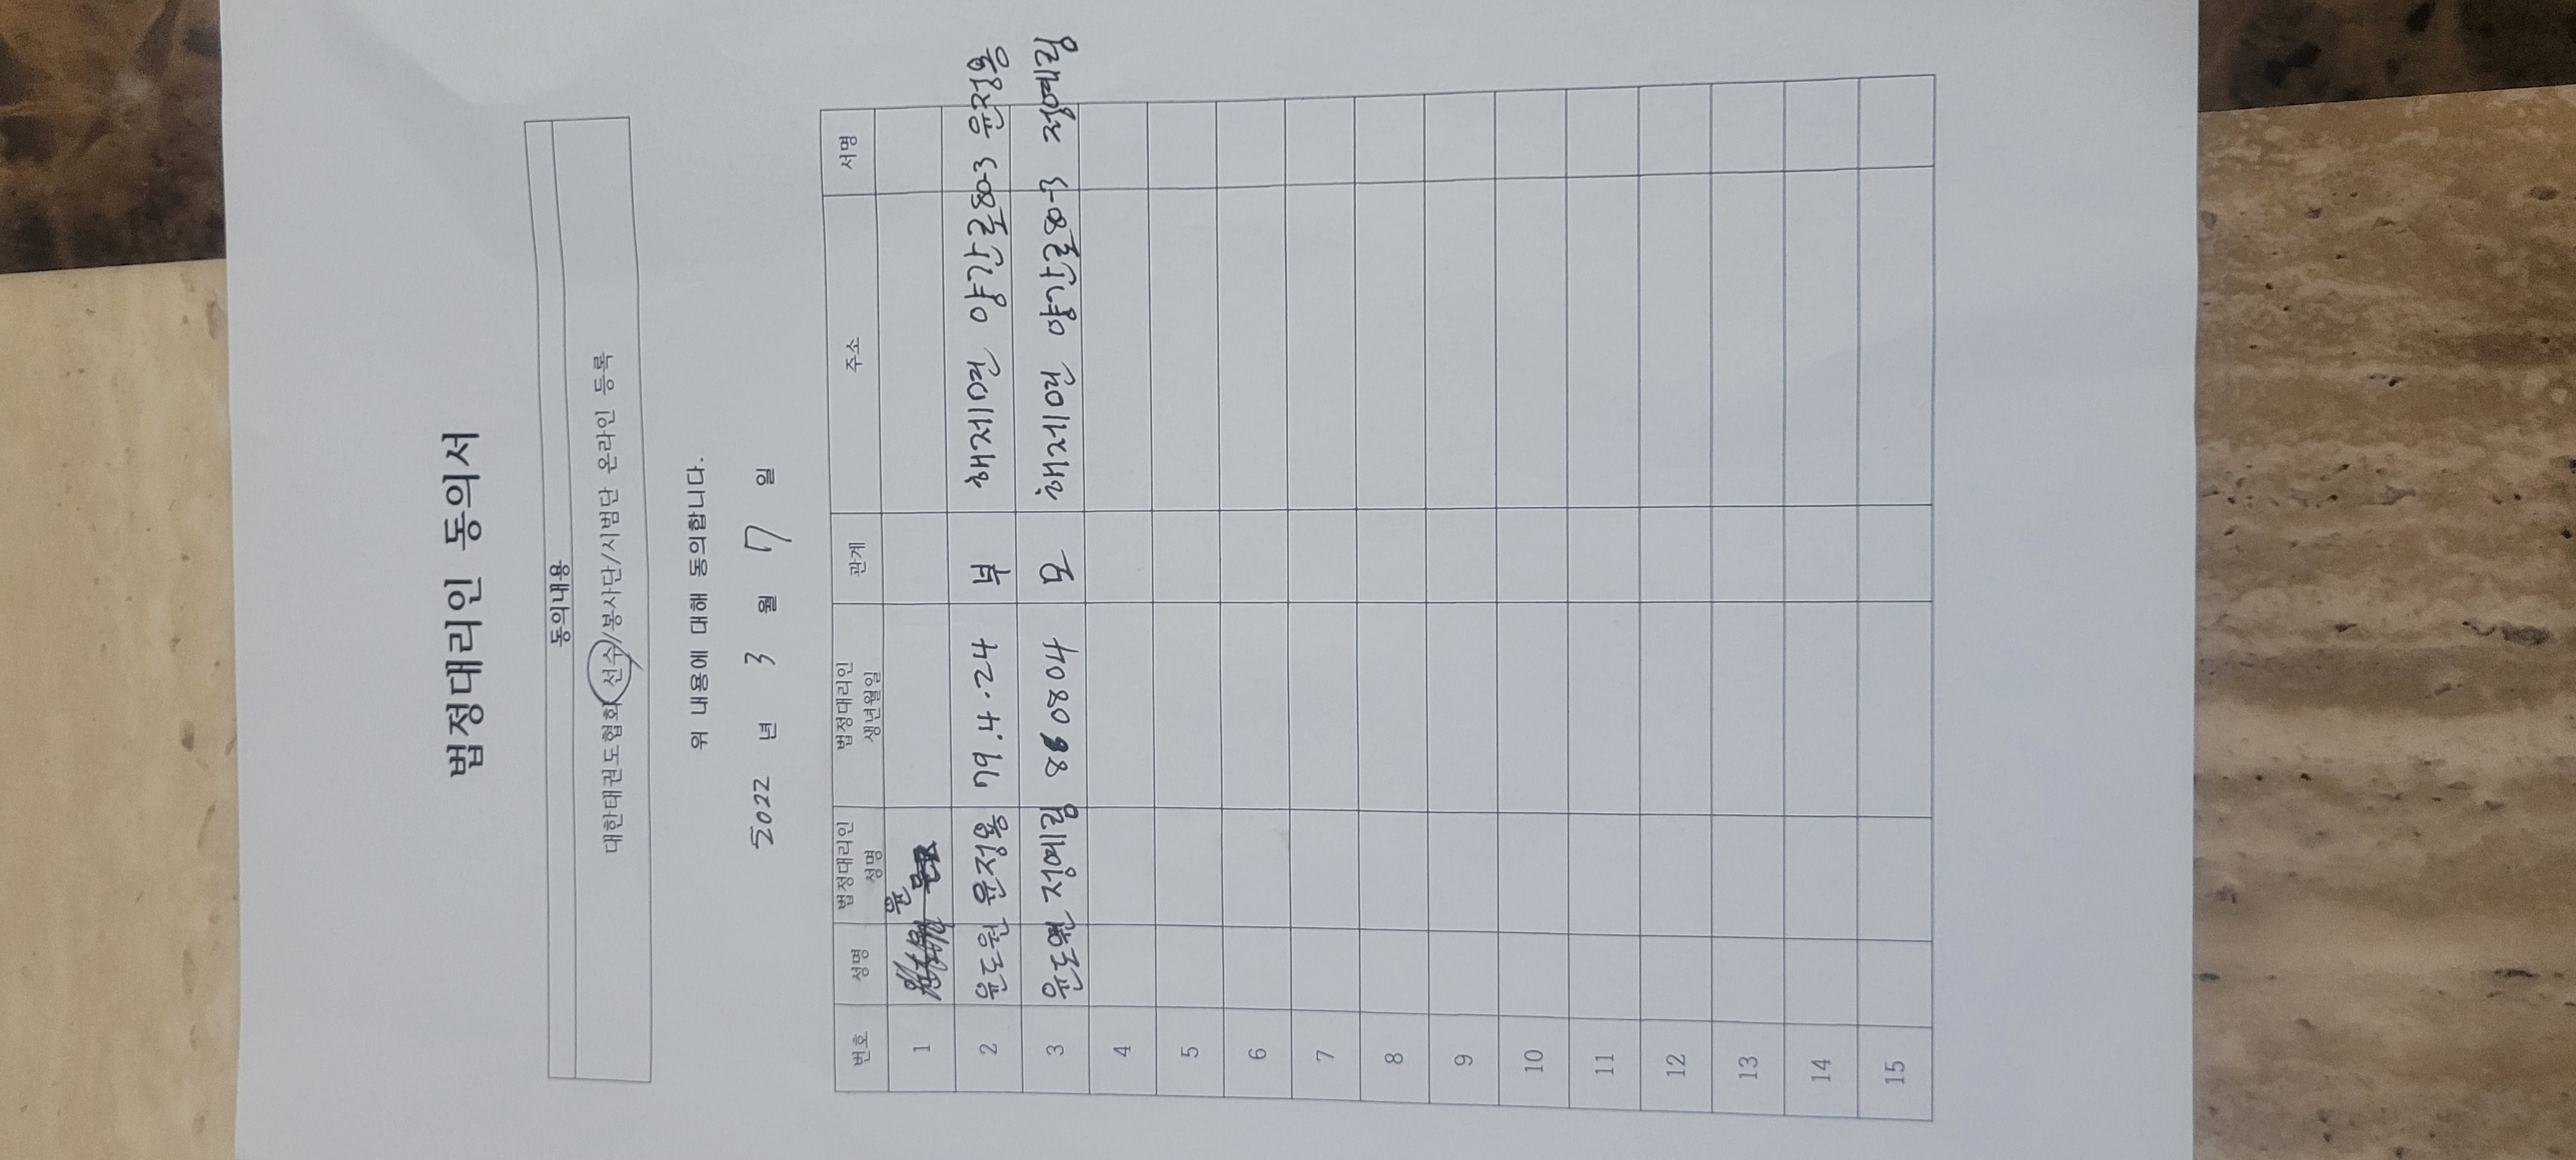 법정대리인 동의서
동의내용
대한태권도협회 선수/봉사단/시범단 온라인 등록
위 내용에 대해 동의합니다.
2022 년 3 월 17 일
번호 성명 법정대리인 성명 법정대리인 생년월일 관계 주소 서명
1 윤
2 윤도원 윤정용 79.4.24 부 해제면 양간로80-3 윤정용
3 윤도원 정예림 880804 모 해제면 양간로80-3 정예림
4
5
6
7
8
9
10
11
12
13
14
15